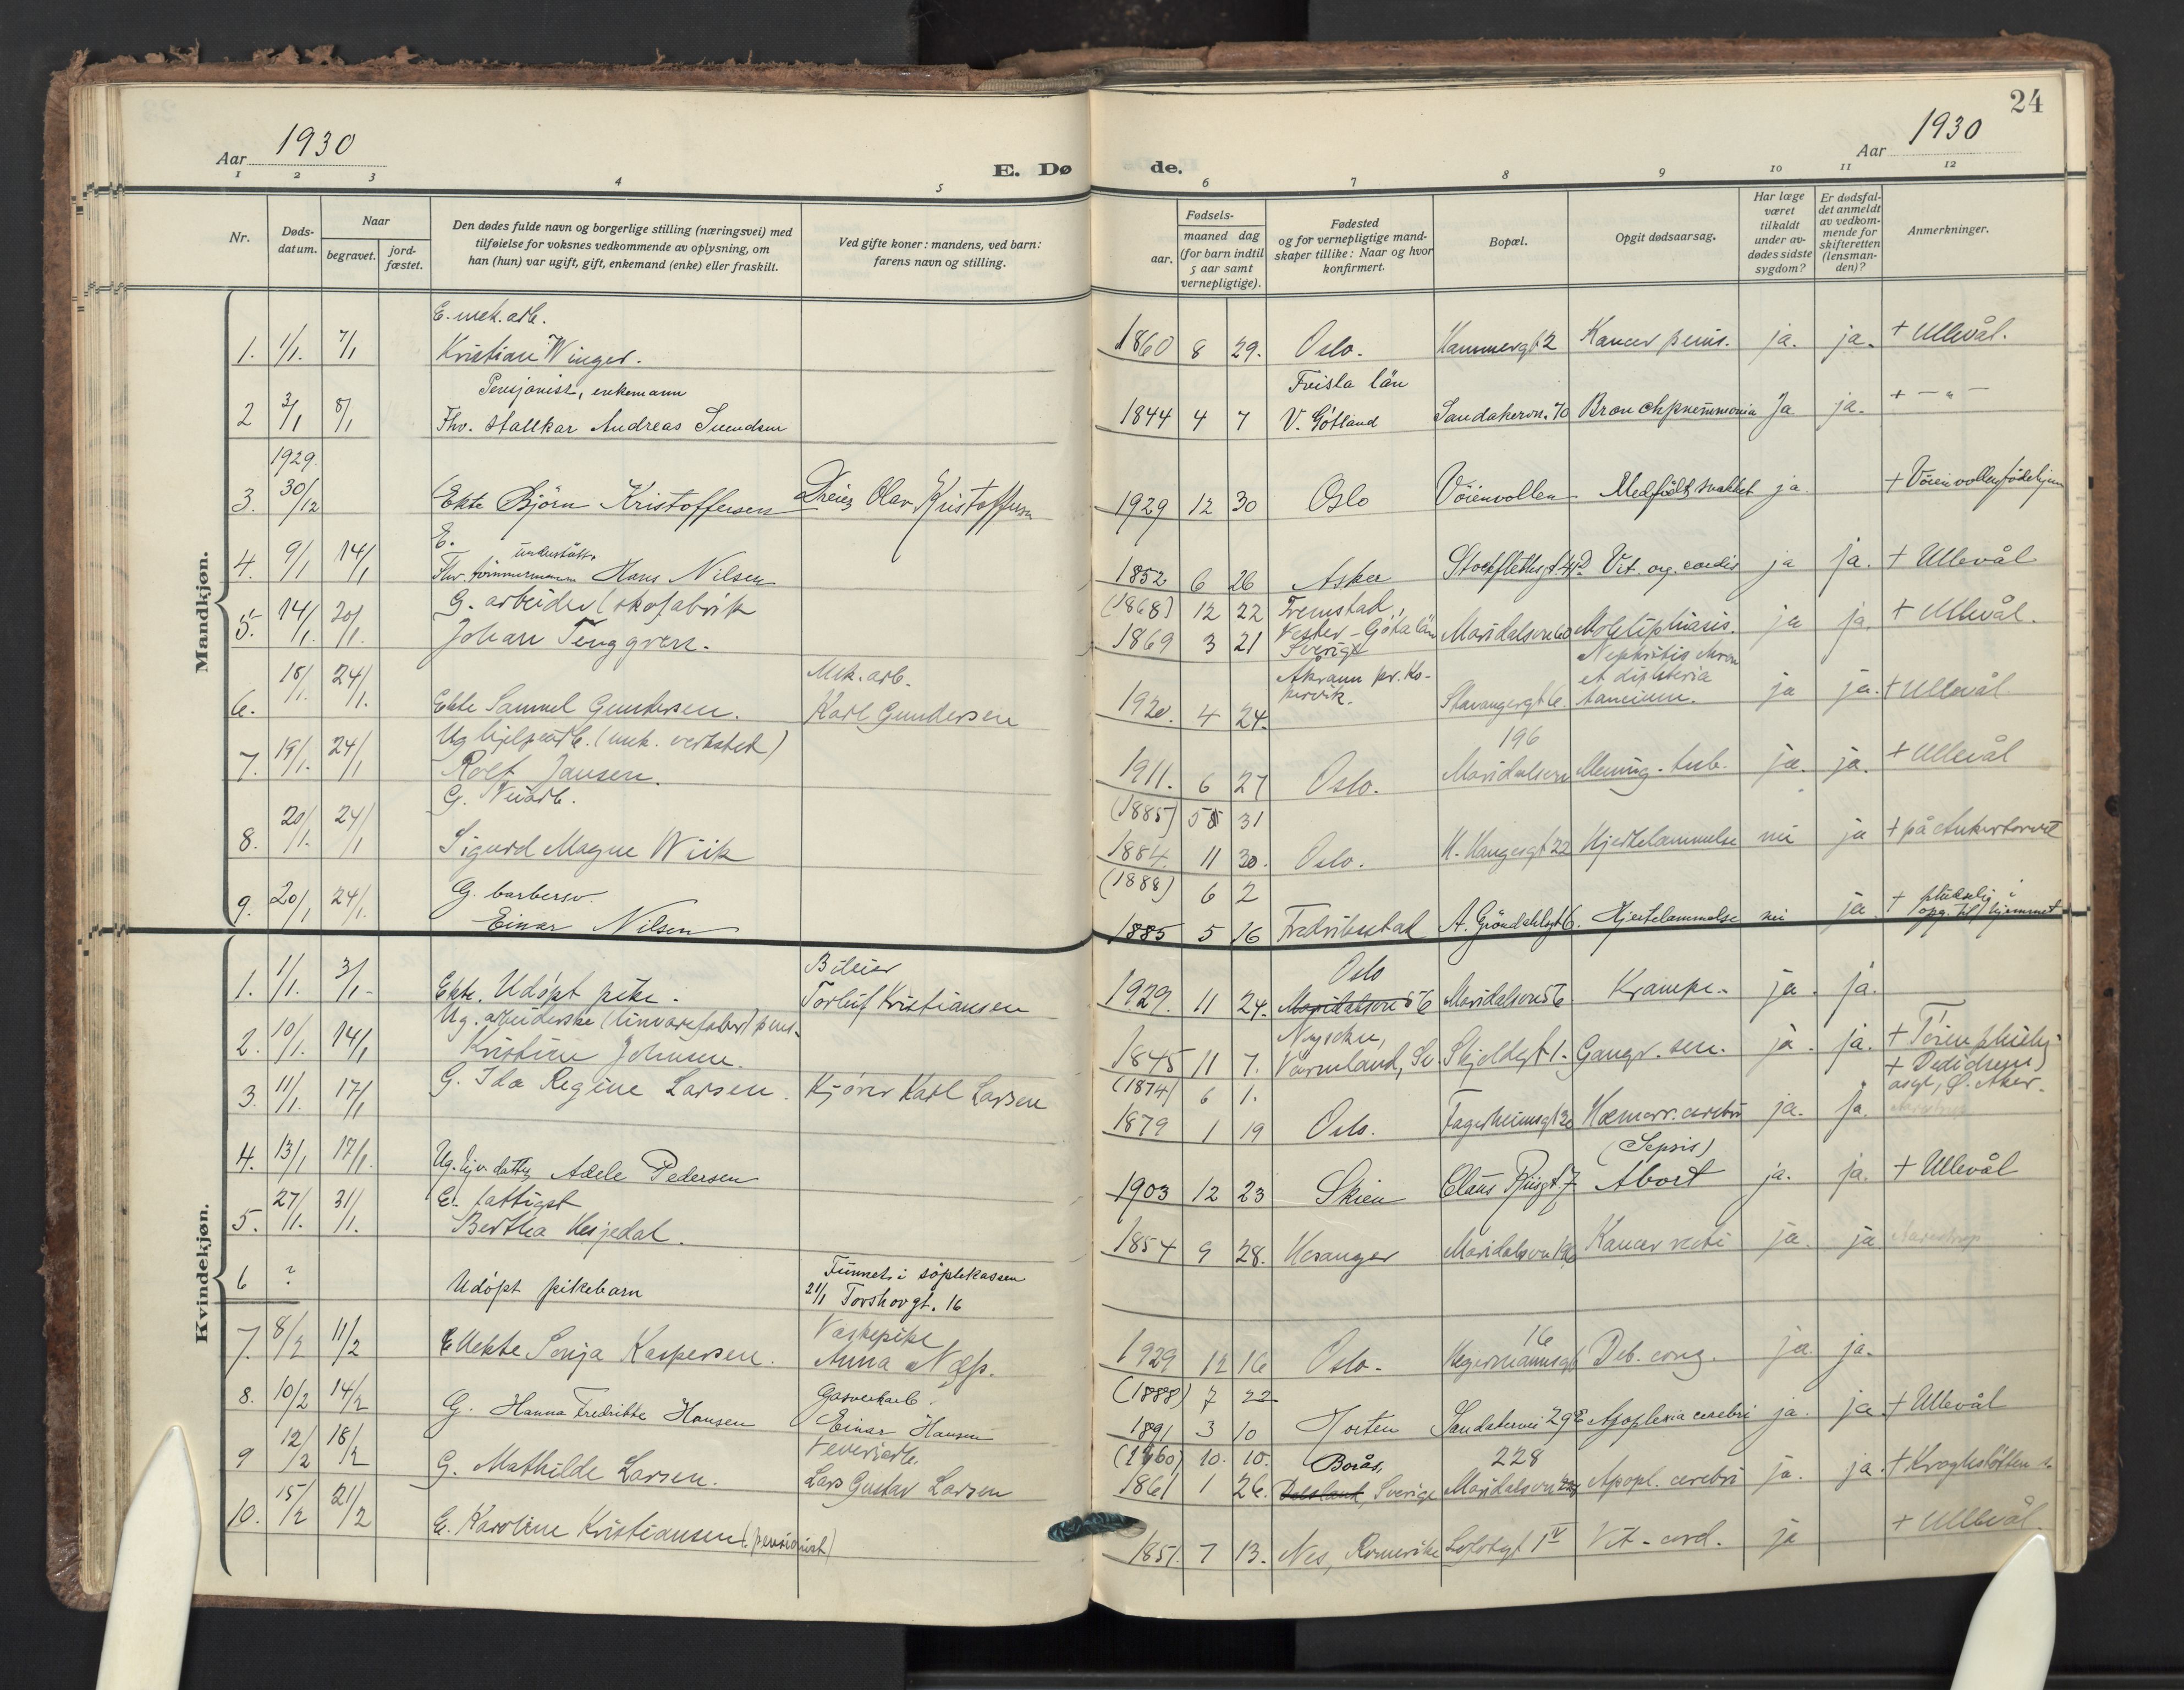 24
Aar 1930
E. Dø de.
Aar 1930
1 2 3 4 5 6 7 8 9 10 11 12
Nr.
Døds-
datum.
Naar
begravet.
jord-
fæstet.
Den dødes fulde navn og borgerlige stilling (næringsvei) med
tilføielse for voksnes vedkommende av oplysning, om
han (hun) var ugift, gift, enkemand (enke) eller fraskilt.
Ved gifte koner: mandens, ved barn:
farens navn og stilling.
Fødsels-
aar.
maaned dag
(for barn indtil
5 aar samt
vernepligtige).
Fødested
og for vernepligtige mand-
skaper tillike: Naar og hvor
konfirmert.
Bopæl.
Opgit dødsaarsag.
Har læge
været
tilkaldt
under av-
dødes sidste
sygdom?
Er dødsfal-
det anmeldt
av vedkom-
mende for
skifteretten
(lensman-
den)?
Anmerkninger.
Mandkjøn.
E. mek. arb.
1. 1/1. 7/1 Kristian Winger. 1860 8 29. Oslo. Hammergt 2 Kancer penis. ja. ja. + Ullevål.
Pensjonist, enkemann Frisla län
2 3/1 8/1 Fhv. stallkar Andreas Svendsen 1844 4 7 V. Götland Sandakervn. 70 Bronchpneumonia Ja ja. + — " —
1929.
3. 30/12 Ekte Björn Kristoffersen Dreier Olav Kristoffersen 1929 12 30 Oslo Vöienvollen Medfödt svakhet ja + Vöienvollen födehjem
E.
4. 9/1 14/1 Fhv. tömmermann understött. Hans Nilsen 1852 6 26 Asker Stockflethsgt. 41 D Vit. org. cordis ja ja. + Ullevål
G. arbeider (skofabrik (1868) 12 22 Fremstad,
5. 14/1. 20/1. Johan Tenggren. 1869 3 21 Vester-Göta län Sverige Maridalsvn 60 ja ja. + Ullevål.
Mek. arb. Åkrann pr. Ko-
pervik. Nephritis chron et
6. 18/1. 24/1. Ekte Samuel Gundersen. Karl Gundersen 1920. 4 24. Stavangergt 6. ja ja. + Ullevål
Ug hjelpearb. (mek. verksted) 196
7. 19/1. 24/1 Rolf Jansen. 1911. 6 27 Oslo. Maridalsvn Mening. tub. ja. ja. + Ullevål
G. Veiarb. (1885) 5 31
8. 20/1. 24/1 Sigurd Magne Wiik 1884. 11 30. Oslo. H. Haugesgt 22 Hjertelammelse nei ja + på Ankertorvet
G. barbersv. (1888) 6 2
9. 20/1 24/1. Einar Nilsen 1885 5 16 Fredrikstad A. Gröndahlsgt 6. Hjertelammelse nei ja + plutselig opg. til i hjemmet
Kvindekjøn.
Bileier Oslo
1. 1/1. 3/1- Ekte. Udöpt pike. Torleif Kristiansen 1929. 11 24. Maridalsvn 56 Maridalsvn 56 Krampe. ja. ja.
Ug. arbeiderske (linvarefabr) pens.
2. 10/1. 14/1 Kristine Johnsen. 1845 11 7. Värmland, Sv. Skjoldsgt 1. Gangr. sen. ja. ja.
(1874) 6 1.
3. 11/1. 17/1 G. Ida Regine Larsen. Kjörer Karl Larsen 1879 1 19 Oslo. Fagerheimsgt 20 Hæmorr. cerebri ja. ja. Ø. Aker.
(Sepsis)
4. 13/1 17/1. Ug. hjv. datter Adele Pedersen 1903 12 23 Skien Claus Riisgt. 7 Abort ja. ja. + Ullevål
E. fattigst
5. 27/1. 31/1. Bertha Hesjedal. 1854 9 28. Hosanger Maridalsvn 196 Kancer recti ja. ja
6 ? Udöpt pikebarn Funnet i söplekassen
21/1 Torshovgt. 16
Vaskepike 16
7. 8/2 11/2 Uekte Sonja Kaspersen. Anna 1929 12 16 Oslo. Hegermannsgt Deb. cong. ja. ja.
Gasverkarb. (1888) 7 22
8. 10/2 14/2 G. Hanna Fredrikke Hansen Einar Hansen 1891 3 10 Horten Sandakervei 29 E Apoplexia cerebri ja. ja + Ullevål
Veveriarb. (1860) 10. 10. Borås, 228
9 12/2 18/2 G. Mathilde Larsen. Lars Gustav Larsen 1861 1 26. Dalsland, Sverige Maridalsvn Apopl. cerebri ja. ja. + Kroghstötten s.
10. 15/2 21/2 E. Karoline Kristiansen (pensionist) 1851. 7 13. Nes, Romerike Lofotgt 1 IV Vit. cord. ja + Ullevål